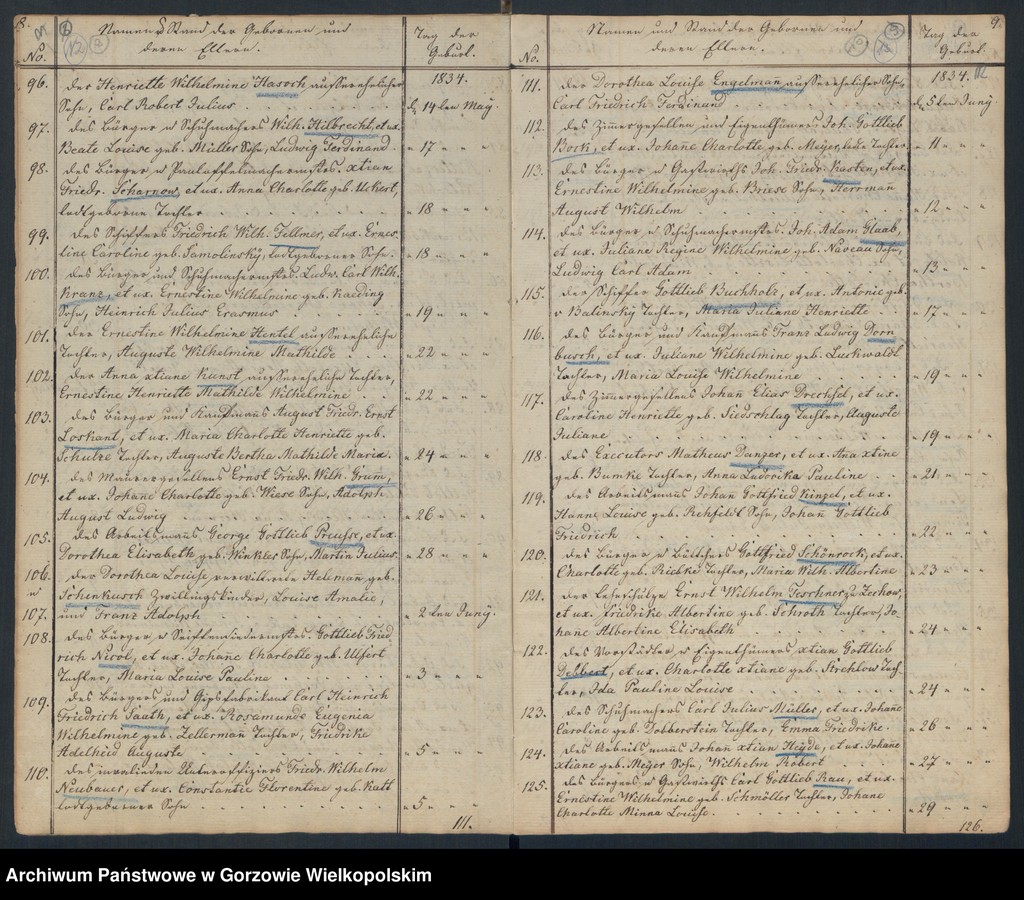 8.
Namen u Stand der Gebornen und
deren Eltern.
Tag der
Geburt.
No.
1834.
96. der Henriette Wilhelmine Hasoch ausserehelicher
Sohn, Carl Robert Julius d. 14ten May
97. des Bürger u Schuhmachers Wilh. Hilbrecht, et ux.
Beate Louise geb. Müller Sohn, Ludwig Ferdinand " 17 " "
98. des Bürger u Pantoffelmachermstrs. xtian
Friedr. Scharnow, et ux. Anna Charlotte geb. Uckert,
todtgeborne Tochter " 18 " "
99. des Schiffers Friedrich Wilh. Fellmer, et ux. Ernes-
tine Caroline geb. Samolinsky, todtgeborner Sohn. " 18 " "
100. des Bürger und Schuhmachermstrs. Ludw. Carl Wilh.
Kranz, et ux. Ernestine Wilhelmine geb. Kaeding
Sohn, Heinrich Julius Erasmus " 19 " "
101. der Ernestine Wilhelmine Hentel aussereheliche
Tochter, Auguste Wilhelmine Mathilde " 22 " "
102. der Anna xtiane Kienst aussereheliche Tochter,
Ernestine Henriette Mathilde Wilhelmine " 22 " "
103. des Bürger und Kaufmans August Friedr. Ernst
Loskant, et ux. Maria Charlotte Henriette geb.
Schulze Tochter, Auguste Bertha Mathilde Maria. " 24 " "
104. des Maurergesellens Ernst Friedr. Wilh. Grum,
et ux. Johane Charlotte geb. Wiese Sohn, Adolph
August Ludwig " 26 " "
105. des Arbeitsmans George Gottlieb Preusse, et ux.
Dorothea Elisabeth geb. Winkler Sohn, Martin Julius. " 28 " "
106. der Dorothea Louise verwittwete Heleman geb.
u Schenkusch Zwillingskinder, Louise Amalie,
107. und Franz Adolph " 2ten Juny.
108. des Bürger u Seifensiedermstrs Gottlieb Fried
rich Nicol, et ux. Johane Charlotte geb. Ulfert
Tochter, Maria Louise Pauline " 3 " "
109. des Bürgers und Gipsfabrikant Carl Heinrich
Friedrich Sauth, et ux. Rosamunde Eugenia
Wilhelmine geb. Zellerman Tochter, Friedrike
Adelheid Auguste " 5 " "
110. des invaliden Unterofficiers Friedr. Wilhelm
Neubauer, et ux. Constantie Florentine geb. Kutt
todtgeborner Sohn " 5 " "
111.
9.
Namen und Stand der Gebornen und
deren Eltern.
Tag der
Geburt.
No.
1834.
111. der Dorothea Louise Engelman ausserehelicher Sohn,
Carl Friedrich Ferdinand d. 5ten Juny
112. des Zimmergesellen und Eigenthümers Joh. Gottlieb
Bock, et ux. Johane Charlotte geb. Meyer, todte Tochter " 11 " "
113. des Bürger u Gastwirths Joh. Friedr. Kasten, et ux.
Ernestine Wilhelmine geb. Briese Sohn, Herrman
August Wilhelm " 12 " "
114. des Bürger u Schuhmachermstrs. Joh. Adam Glaab,
et ux. Juliane Regine Wilhelmine geb. Naveau Sohn,
Ludwig Carl Adam " 13 " "
115. der Schiffer Gottlieb Buchholz, et ux. Antonie geb.
v Balinsky Tochter, Maria Juliane Henriette " 17 " "
116. des Bürger und Kaufmans Franz Ludwig Dorn
busch, et ux. Juliane Wilhelmine geb. Luckwaldt
Tochter, Maria Louise Wilhelmine " 19 " "
117. des Zimmergesellens Johan Elias Drechsel, et ux.
Caroline Henriette geb. Siedschlag Tochter, Auguste
Juliane " 19 " "
118. des Executors Matheus Danzer, et ux. Ana xtine
geb. Bunke Tochter, Anna Ludovika Pauline " 21 " "
119. des Arbeitsmans Johan Gottfried Kinzel, et ux.
Hanne Louise geb. Rehfeldt Sohn, Johan Gottlieb
Friedrich " 22 " "
120. des Bürger u Büttchers Gottfried Schönrock, et ux.
Charlotte geb. Riebke Tochter, Maria Wilh. Albertine " 23 " "
121. der Lehrschulze Ernst Wilhelm Teschner z. Zechow,
et ux. Friedrike Albertine geb. Schroth Tochter, Jo-
hane Albertine Elisabeth " 24 " "
122. des Vorstädter u Eigenthümers xtian Gottlieb
Debbert, et ux. Charlotte xtiane geb. Strehlow Toch
ter, Ida Pauline Louise " 24 " "
123. des Schuhmachers Carl Julius Müller, et ux. Johane
Caroline geb. Dobberstein Tochter, Emma Friedrike. " 26 " "
124. des Arbeitsmans Johan xtian Heyde, et ux. Johane
xtiane geb. Meyer Sohn, Wilhelm Robert " 27 " "
125. des Bürgers u Gastwirths Carl Gottlieb Rau, et ux.
Ernestine Wilhelmine geb. Schmöller Tochter, Johane
Charlotte Minna Louise. " 29 " "
126.
Archiwum Państwowe w Gorzowie Wielkopolskim